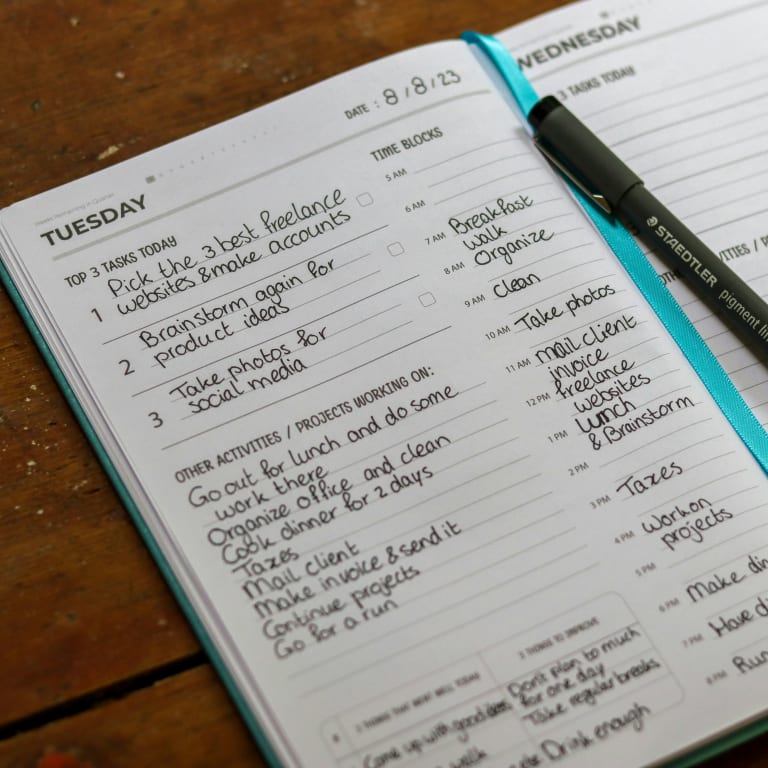 DATE : 8 / 8 / 23
TUESDAY
TOP 3 TASKS TODAY
1 Pick the 3 best freelance
websites & make accounts
2 Brainstorm again for
product ideas
3 Take photos for
social media
OTHER ACTIVITIES / PROJECTS WORKING ON:
Go out for lunch and do some
work there
Organize office and clean
Cook dinner for 2 days
Taxes
Mail client
Make invoice & send it
Continue projects
Go for a run
TIME BLOCKS
5 AM
6 AM
7 AM Breakfast
walk
8 AM Organize
9 AM Clean
10 AM Take photos
11 AM Mail client
invoice
12 PM freelance
websites
lunch
1 PM & Brainstorm
2 PM
3 PM Taxes
4 PM work on
projects
5 PM
6 PM Make din
7 PM Have di
8 PM Run
3 THINGS THAT WENT WELL TODAY
Came up with good
walk
3 THINGS TO IMPROVE
Don't plan to much
for one day
Take regular breaks
Drink enough
WEDNESDAY
3 TASKS TODAY
STAEDTLER pigment lin